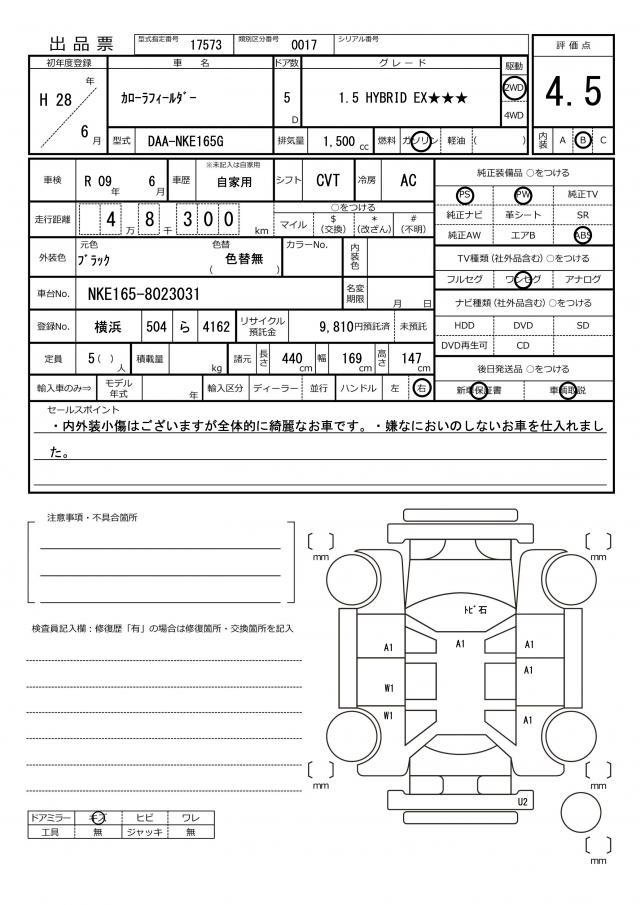 出品票 型式指定番号 17573 類別区分番号 0017 シリアル番号
初年度登録 車名 ドア数 グレード 駆動 評価点
H 28 年 6 月 カローラフィールダー 5 D 1.5 HYBRID EX★★★ 2WD 4WD 4.5
型式 DAA-NKE165G 排気量 1,500 cc 燃料 ガソリン 軽油 ( ) 内装 A B C
車検 R 09 年 6 月 車歴 ※未記入は自家用 自家用 シフト CVT 冷房 AC
走行距離 4 8 3 0 0 万 千 km ○をつける マイル $ (交換) * (改ざん) # (不明)
外装色 元色 ブラック 色替 色替無 ( ) カラーNo. 内装色
車台No. NKE165-8023031 名変期限 月 日
登録No. 横浜 504 ら 4162 リサイクル預託金 9,810円預託済 未預託
定員 5 ( ) 人 積載量 kg 諸元 長さ 440 cm 幅 169 cm 高さ 147 cm
輸入車のみ⇒ モデル年式 年 輸入区分 ディーラー 並行 ハンドル 左 右
純正装備品 ○をつける
PS PW 純正TV
純正ナビ 革シート SR
純正AW エアB ABS
TV種類 (社外品含む) ○をつける
フルセグ ワンセグ アナログ
ナビ種類 (社外品含む) ○をつける
HDD DVD SD
DVD再生可 CD
後日発送品 ○をつける
新車保証書 車輌取説
セールスポイント
・内外装小傷はございますが全体的に綺麗なお車です。・嫌なにおいのしないお車を仕入れまし
た。
注意事項・不具合箇所
検査員記入欄：修復歴「有」の場合は修復箇所・交換箇所を記入
〔 〕 mm 〔 〕 mm
トビ石
A1 A1 A1
W1 A1
W1 A1
〔 〕 mm 〔 〕 mm
U2
〔 〕 mm
ドアミラー キズ ヒビ ワレ
工具 無 ジャッキ 無